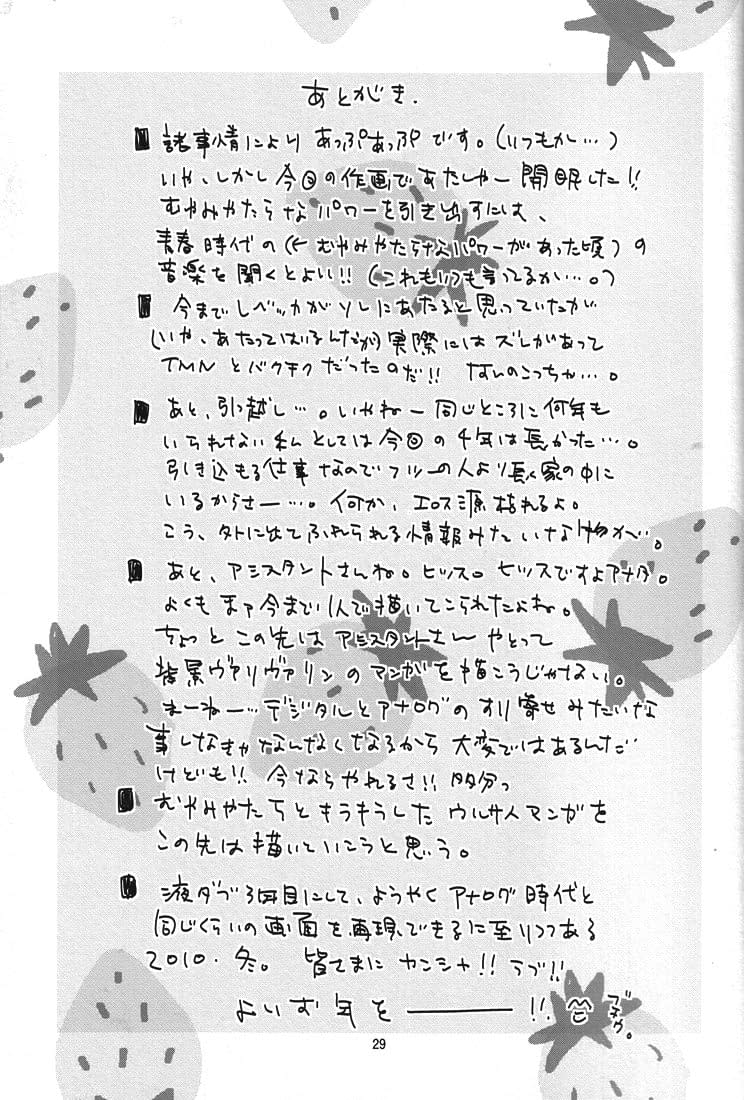 あとがき.
■ 諸事情により あっぷあっぷです。(いつもか…)
いや、しかし今回の作画であたしゃー開眼した!!
むやみやたらなパワーを引き出すには、
青春時代の(← むやみやたらなパワーがあった頃)の
音楽を聞くとよい!! (これもいつも言ってるか…。)
■ 今までレベッカがソレにあたると思っていたが
(いや、あたってはいるんだが)実際にはズレがあって
TMNとバクチクだったのだ!! なんのこっちゃ…。
■ あと、引越し…。いやねー同じところに何年も
いられない私としては今回の4年は長かった…。
引き込もる仕事なのでフツーの人より長く家の中に
いるからさー…。何か、エロス源枯れるよ。
こう、外に出てふれられる情報みたいな物が…。
■ あと、アシスタントさんね。ヒッス。ヒツスですよアナタ。
よくもまァ今まで1人で描いてこられたよね。
ちょっとこの先はアシスタントさんやとって
背景ヴァリヴァリンのマンガを描こうじゃない。
まーねー…デジタルとアナログのすり寄せみたいな
事しなきゃなんなくなるから大変ではあるんだ
けども!! 今ならやれるさ!! 多分っ
■ むやみやたらとキラキラした ウルサイマンガを
この先は描いていこうと思う。
■ 液タブ3年目にして、ようやくアナログ時代と
同じくらいの画面を再現できるに至りつつある
2010・冬。 皆てまに カンシャ!! ラブ!!
よいお年を――――!!
29